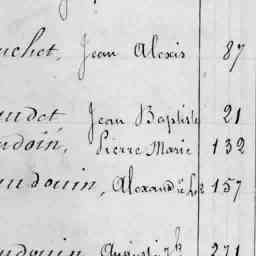 uchet, Jean Alexis 87
audet Jean Baptiste 21
udoin, Pierre Marie 132
audouin, Alexand.re 157
udouin 271